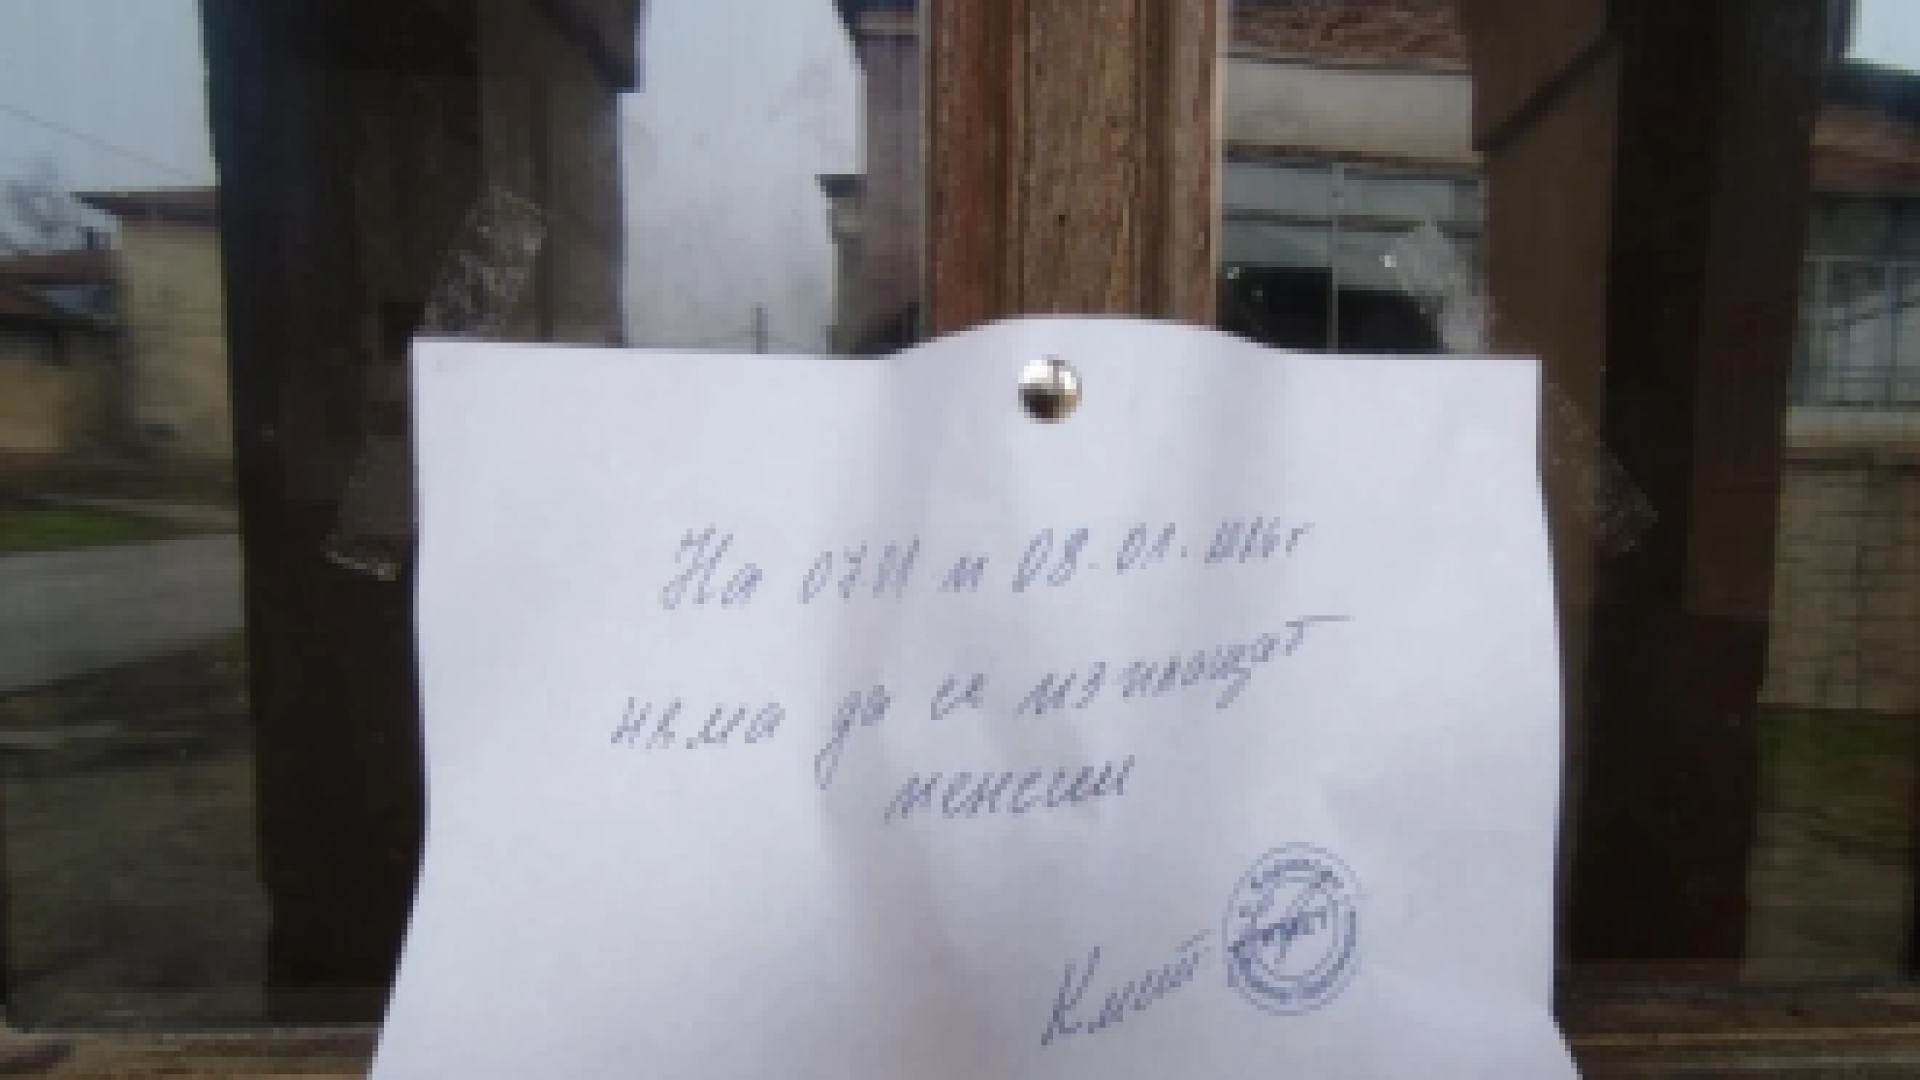 На 07 и 08.01.2016г
няма да се изплащат
пенсии
Кмет